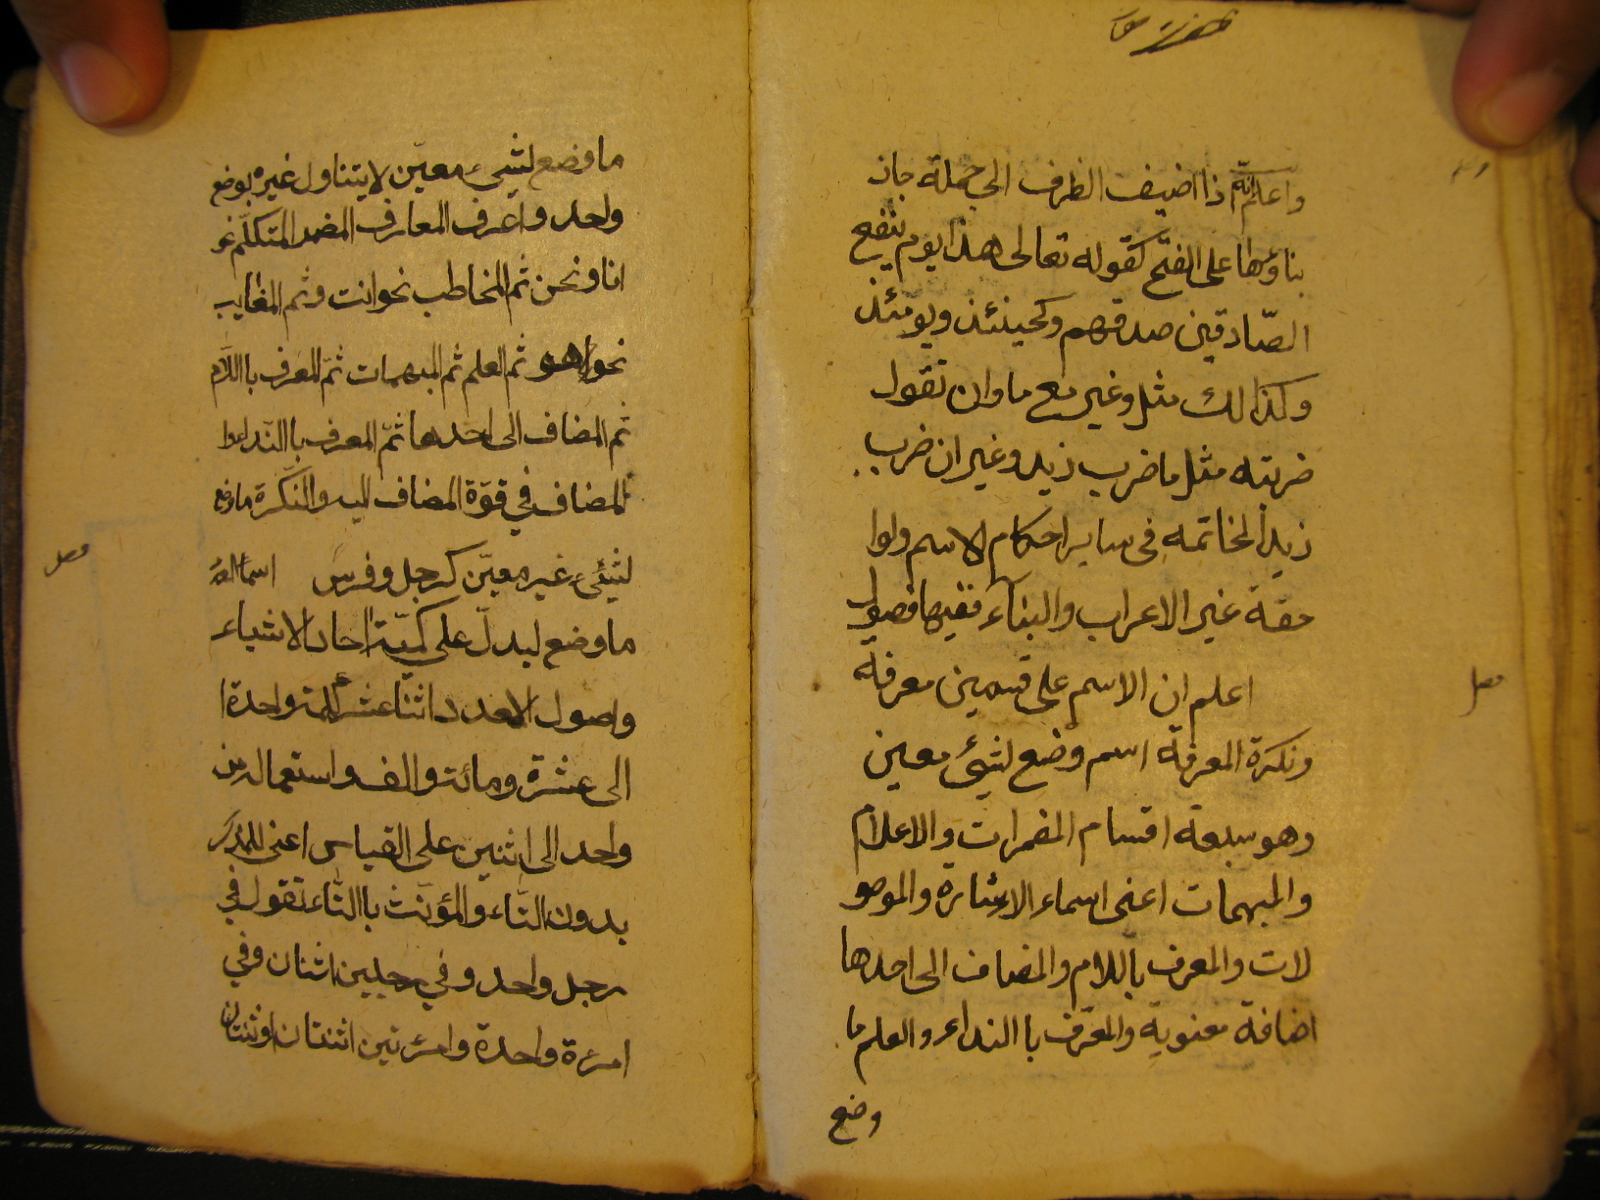 واعلم انّه اذا اضيف الظرف الى جملة جاز
بناؤها على الفتح كقوله تعالى هذا يوم ينفع
الصّادقين صدقهم وكحينئذ ويومئذ
وكذالك مثل وغير مع ما وان تقول
ضربته مثل ما ضرب زيد وغير ان ضرب
زيد الخاتمه فى ساير احكام الاسم ولوا
حقه غير الاعراب والبناء ففيها فصول
فصل
اعلم ان الاسم على قسمين معرفة
ونكرة المعرفة اسم وضع لشئ معين
وهو سبعة اقسام المضمرات والاعلام
والمبهمات اعنى اسماء الاشارة والموصو
لات والمعرف باللام والمضاف الى احدها
اضافة معنوية والمعرّف باالنداء والعلم ما
وضع
ما وضع لشئ معيّن لا يتناول غيره بوضع
واحد واعرف المعارف المضمر المتكلّم نحو
انا ونحن ثم المخاطب نحو انت وثم الغايب
نحو هو ثم العلم ثم المبهمات ثمّ المعرف باللّام
ثم المضاف الى احدها ثمّ المعرف باالنّداء وا
لمضاف في قوّة المضاف اليه والنّكرة ما وضع
فصل
لشئ غير معيّن كرجل وفرس اسماء العدد
ما وضع ليدلّ على كميّة احاد الاشياء
واصول العدد اثنا عشر كلمة واحدة
الى عشرة ومائة والف واستعماله من
واحد الى اثنين على القياس اعنى للمذكر
بدون التّاء والمؤنّث باالتّاء تقول في
رجل واحد وفي رجلين اثنان وفي
امرءة واحدة وامرءتين اثنتان او ثنتان